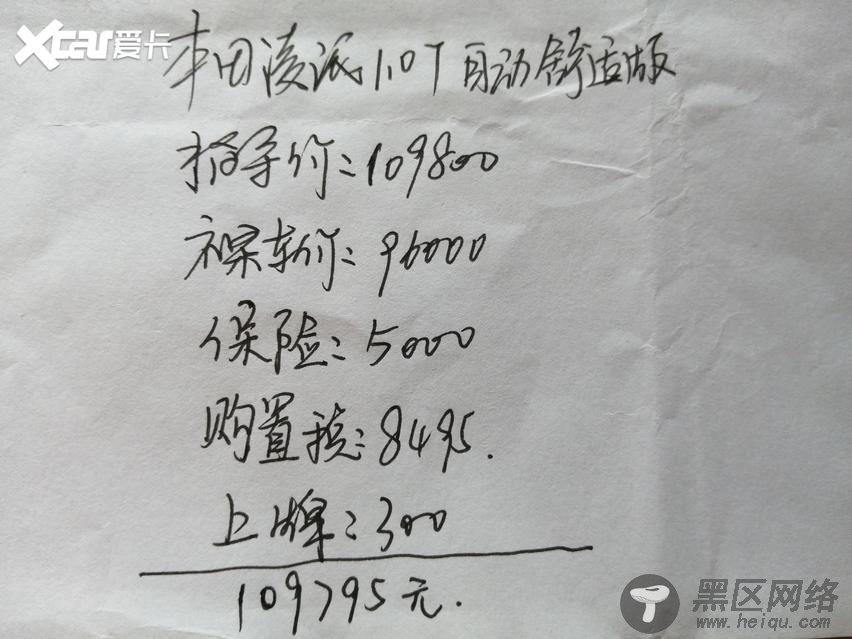 XCAR爱卡
本田凌派1.0T自动舒适版
指导价：109800
裸车价：96000
保险：5000
购置税：8495.
上牌：300
109795元.
黑区网络
www.heiqu.com